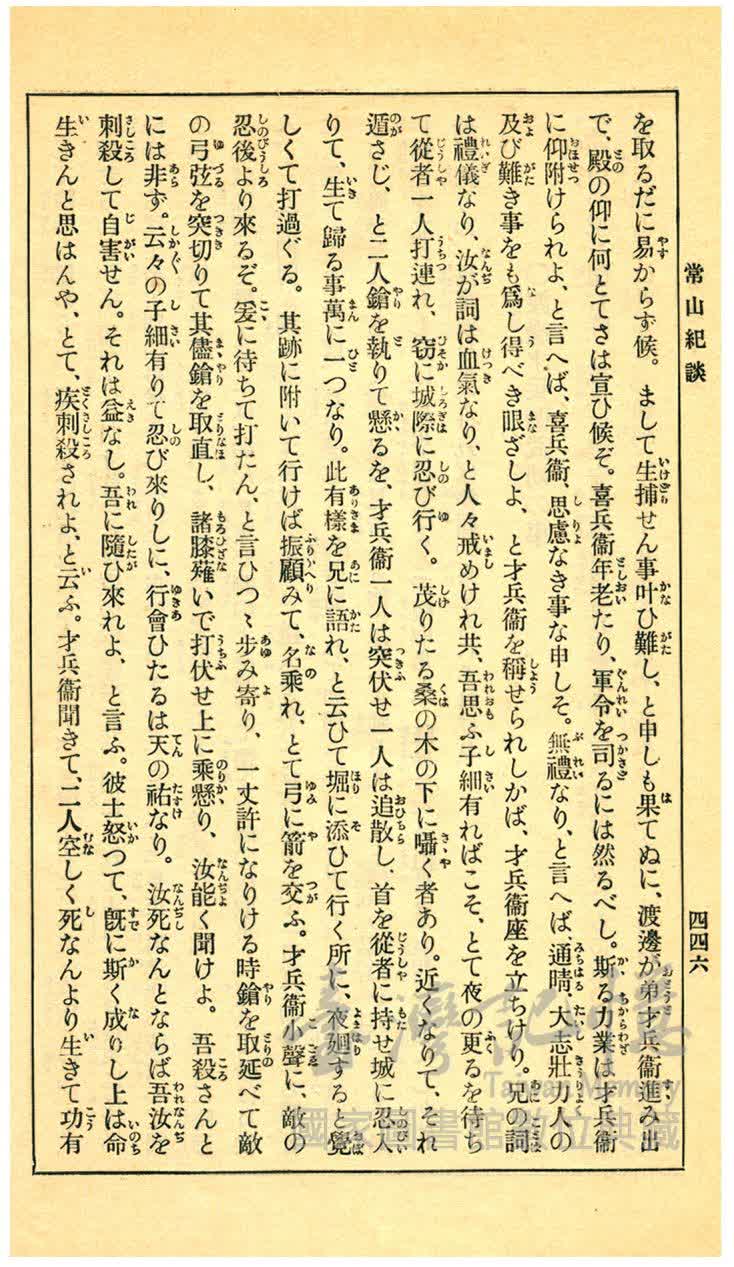 常山紀談
四四六
を取るだに易からず候。まして生捕せん事叶ひ難し、と申しも果てぬに、渡邊が弟才兵衞進み出
で、殿の仰に何とてさは宣ひ候ぞ。喜兵衞年老たり、軍令を司るには然るべし。斯る力業は才兵衞
に仰附けられよ、と言へば、喜兵衞、思慮なき事な申しそ。無禮なり、と言へば、通晴、大志壯力人の
及び難き事をも爲し得べき眼ざしよ、と才兵衞を稱せられしかば、才兵衞座を立ちけり。兄の詞
は禮儀なり、汝が詞は血氣なり、と人々戒めけれ共、吾思ふ子細有ればこそ、とて夜の更るを待ち
て從者一人打連れ、窃に城際に忍び行く。茂りたる桑の木の下に囁く者あり。近くなりて、それ
遁さじ、と二人鎗を執りて懸るを、才兵衞一人は突伏せ一人は追散し、首を從者に持せ城に忍入
りて、生て歸る事萬に一つなり。此有樣を兄に語れ、と云ひて堀に添ひて行く所に、夜廻すると覺
しくて打過ぐる。其跡に附いて行けば振顧みて、名乘れ、とて弓に箭を交ふ。才兵衞小聲に、敵の
忍後より來るぞ。爰に待ちて打たん、と言ひつゝ步み寄り、一丈許になりける時鎗を取延べて敵
の弓弦を突切りて其儘鎗を取直し、諸膝薙いで打伏せ上に乘懸り、汝能く聞けよ。吾殺さんと
には非ず。云々の子細有りて忍び來りしに、行會ひたるは天の祐なり。汝死なんとならば吾汝を
刺殺して自害せん。それは益なし。吾に隨ひ來れよ、と言ふ。彼士怒つて、旣に斯く成りし上は命
生きんと思はんや、とて、疾刺殺されよ、と云ふ。才兵衞聞きて、二人空しく死なんより生きて功有
臺灣記憶
Taiwan Memory
國家圖書館數位典藏